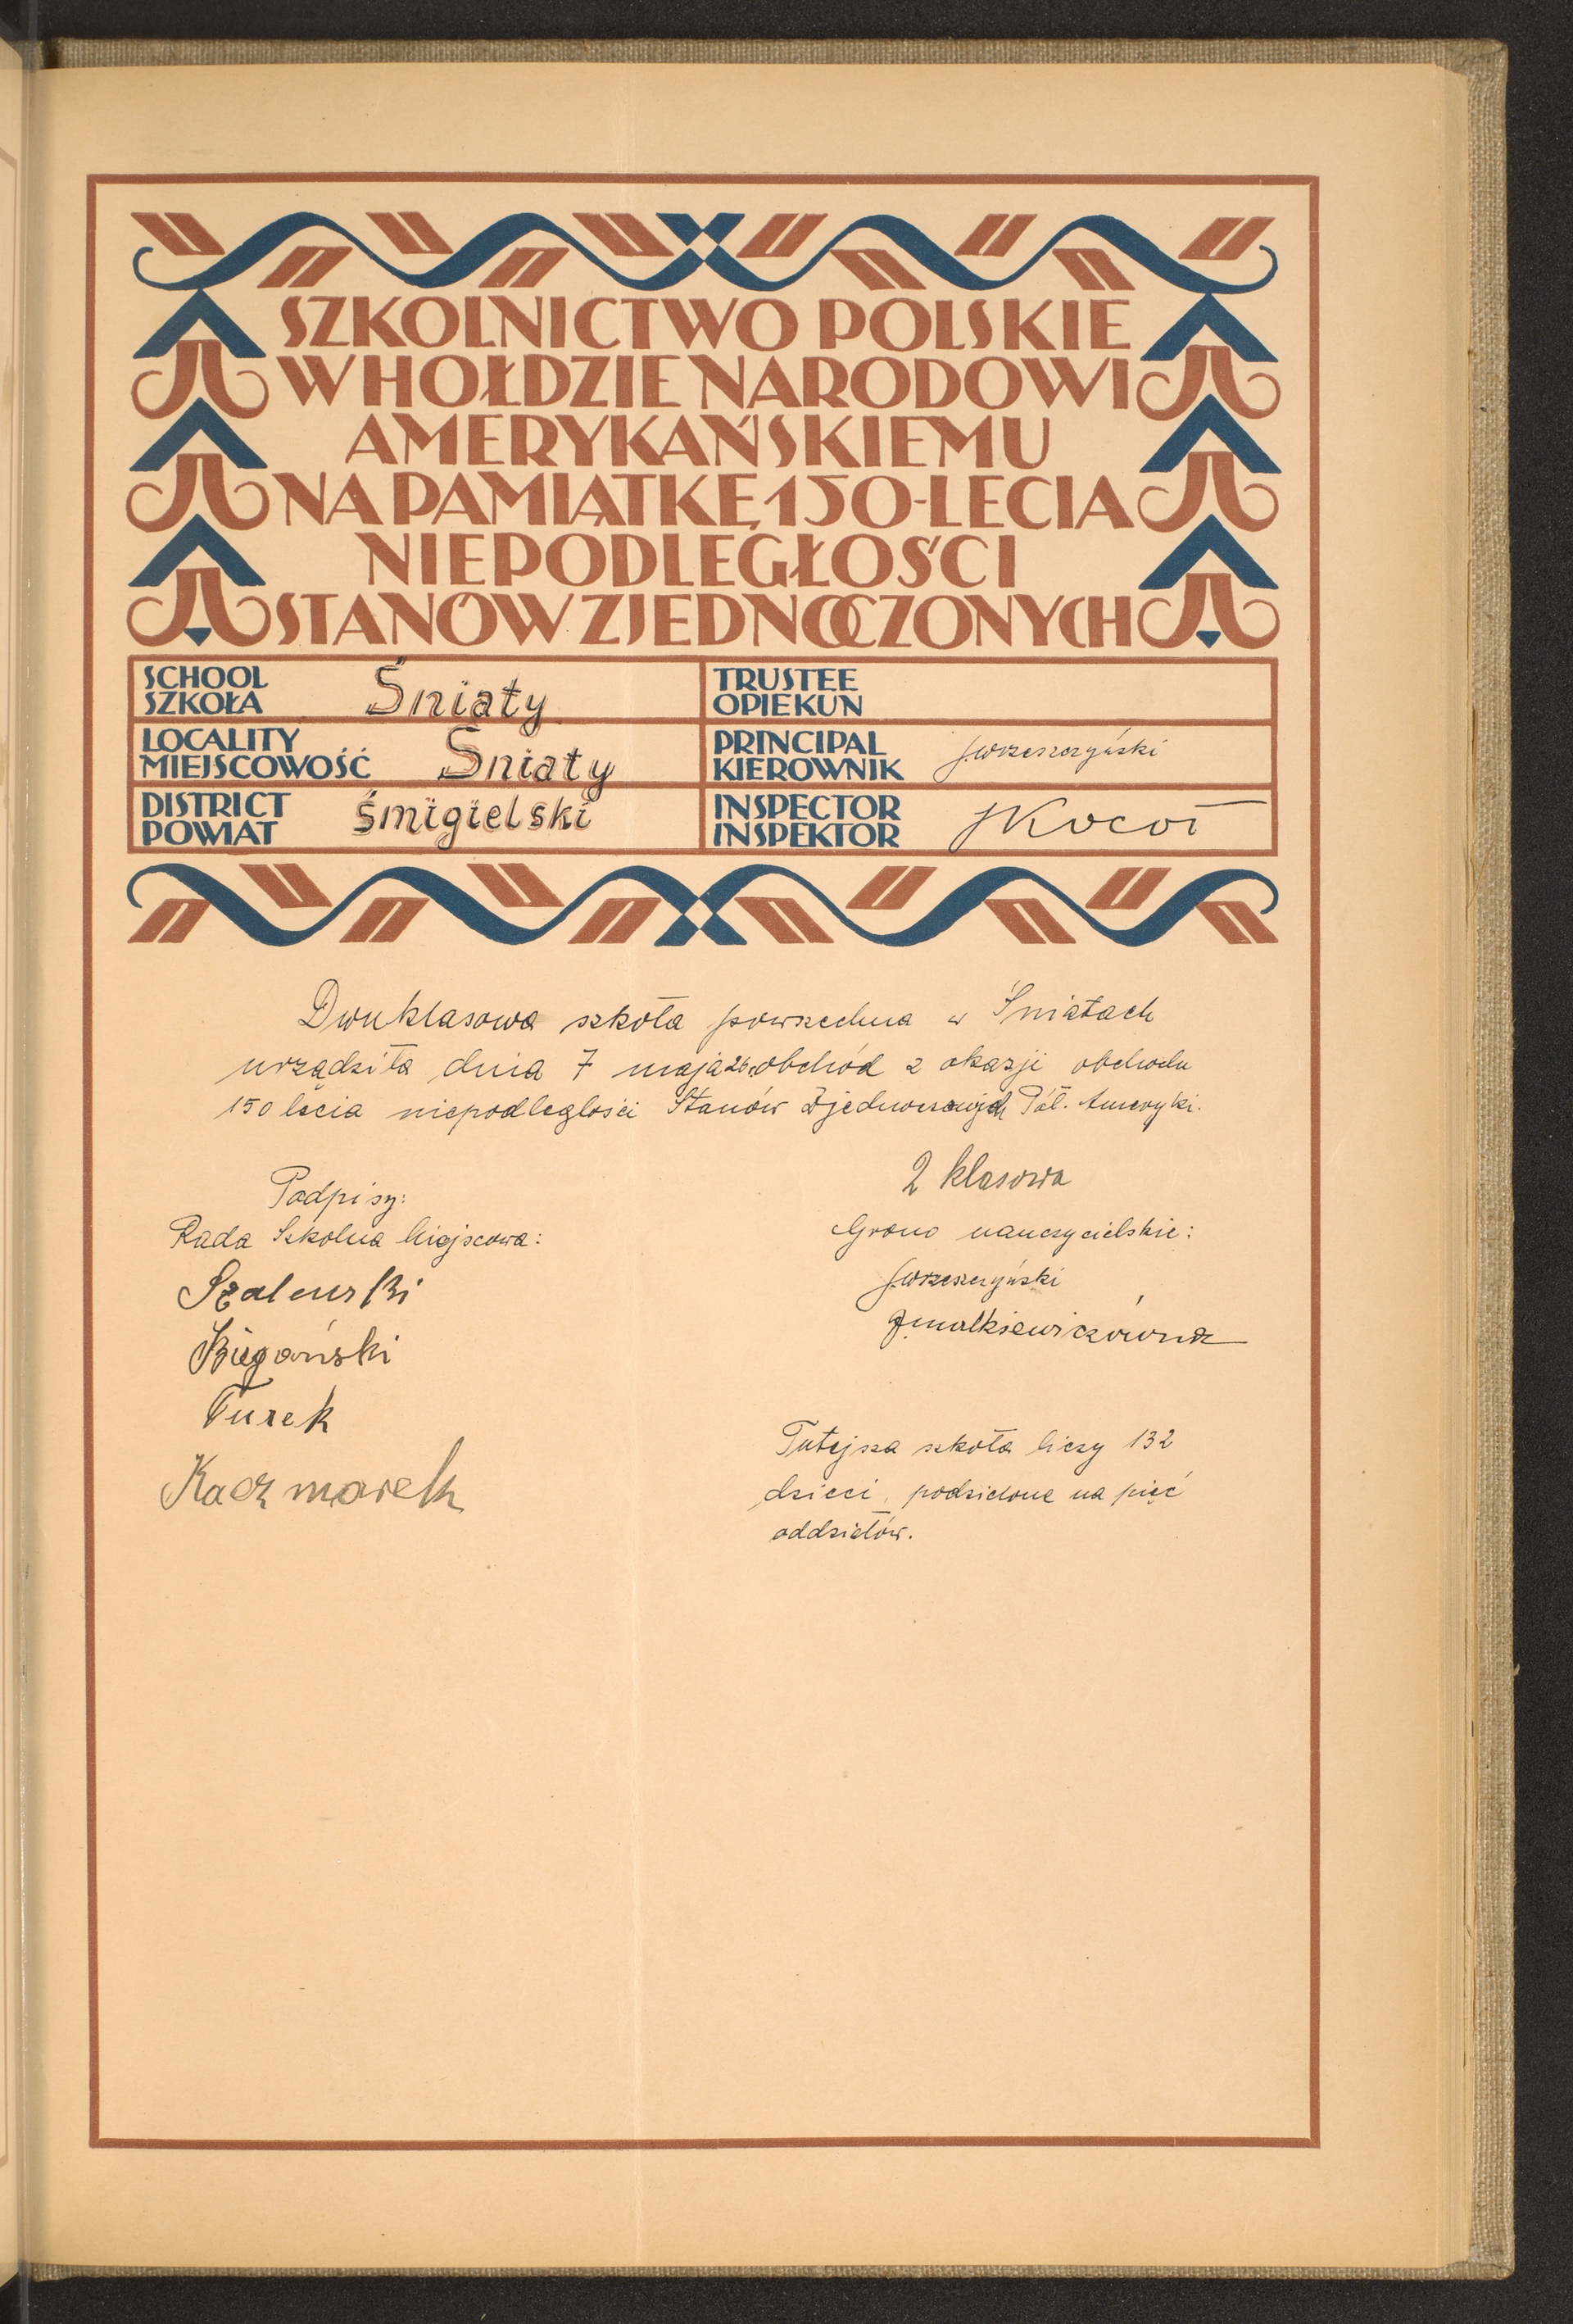 SZKOLNICTWO POLSKIE
W HOŁDZIE NARODOWI
AMERYKAŃSKIEMU
NA PAMIĄTKĘ 150-LECIA
NIEPODLEGŁOŚCI
STANÓW ZJEDNOCZONYCH
SCHOOL
SZKOŁA Śniaty
TRUSTEE
OPIEKUN
LOCALITY
MIEJSCOWOŚĆ Śniaty
PRINCIPAL
KIEROWNIK J. Wrzeszczyński
DISTRICT
POWIAT śmigielski
INSPECTOR
INSPEKTOR JKocoł
Dwuklasowa szkoła powszechna w Śniatach
urządziła dnia 7 maja 26 obchód z okazji obchodu
150 lecia niepodległości Stanów Zjednoczonych Pół. Ameryki.
Podpisy:
Rada Szkolna Miejscowa:
Szalewski
Biegański
Turek
Kaczmarek
2 klasowa
Grono nauczycielskie:
J. Wrzeszczyński
Tutejsza szkoła liczy 132
dzieci, podzielone na pięć
oddziałów.